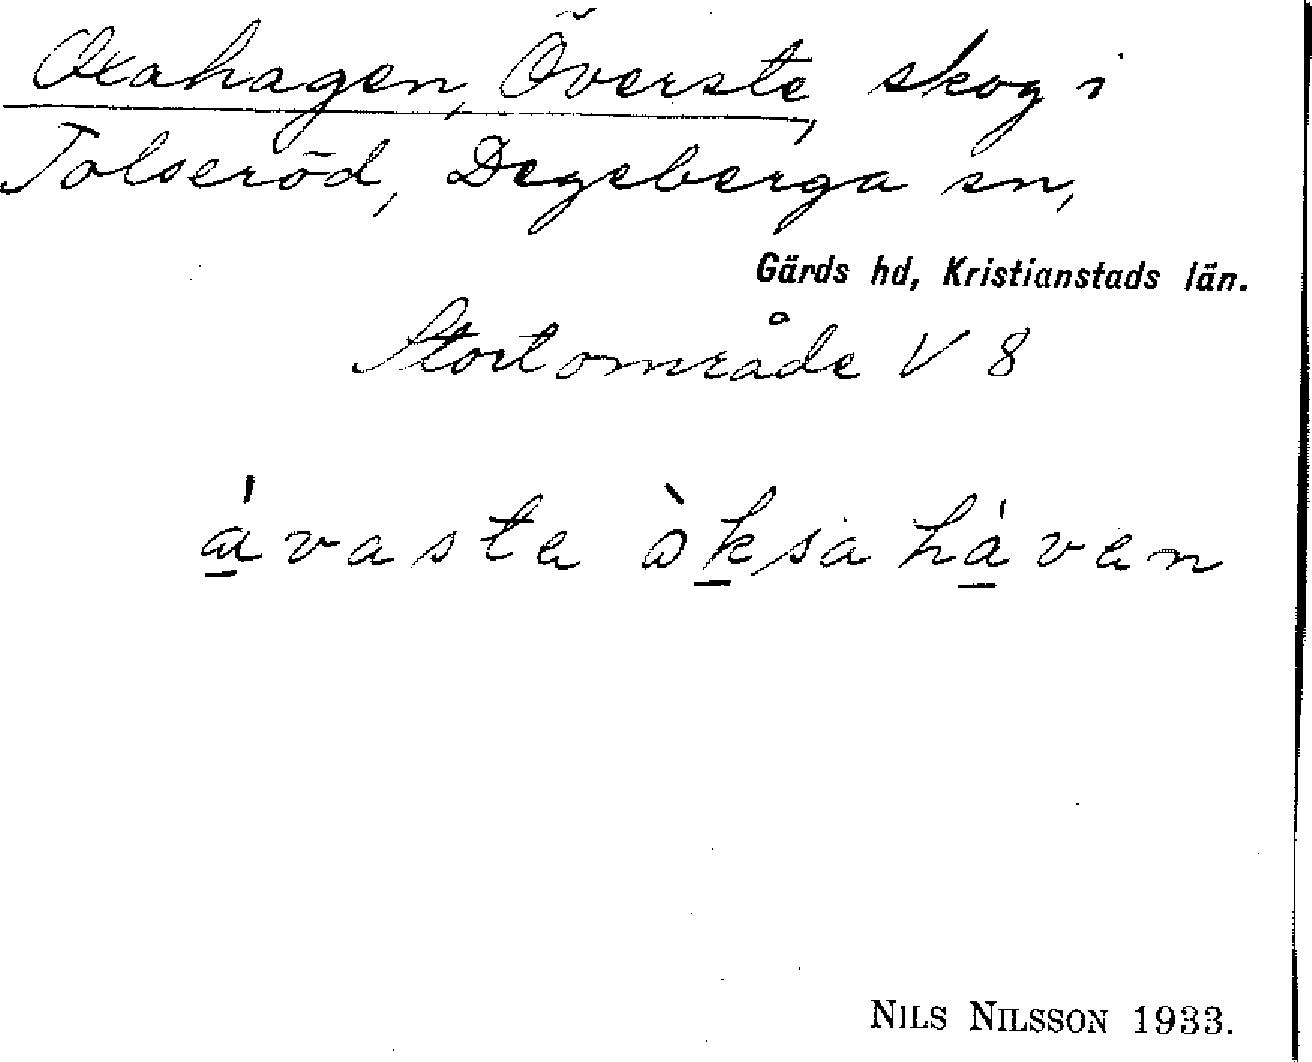 Oxahagen, Överste, skog i
Tolseröd, Degeberga sn,
Gärds hd, Kristianstads län.
Stort område V 8
á̱vasta òḵsahá̱van
NILS NILSSON 1933.